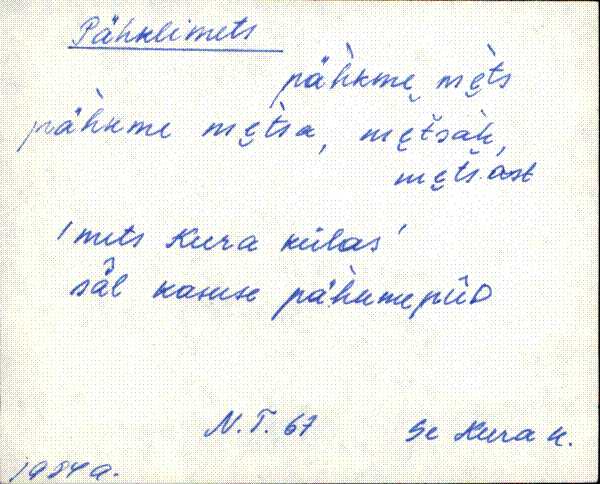 Pähklimets
päh̀kmę mę̀ts
päh̀kme mę̀tsa, mętšàh,
mętš.ast
'mets Kura külas'
sä̂l kasuse päh̀kmepûD
N.T. 67 Se Kura k.
1984 a.